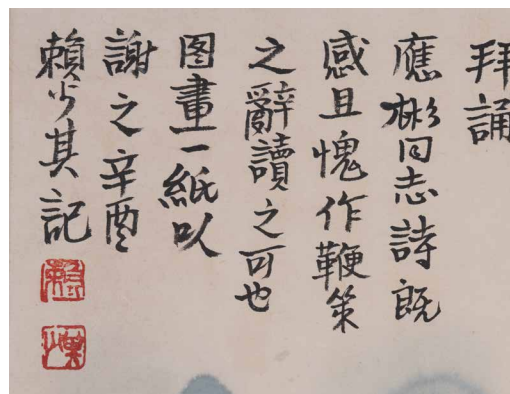 拜誦
應彬同志詩既
感且愧作鞭策
之辭讀之可也
图畫一紙以
謝之辛酉
賴少其記